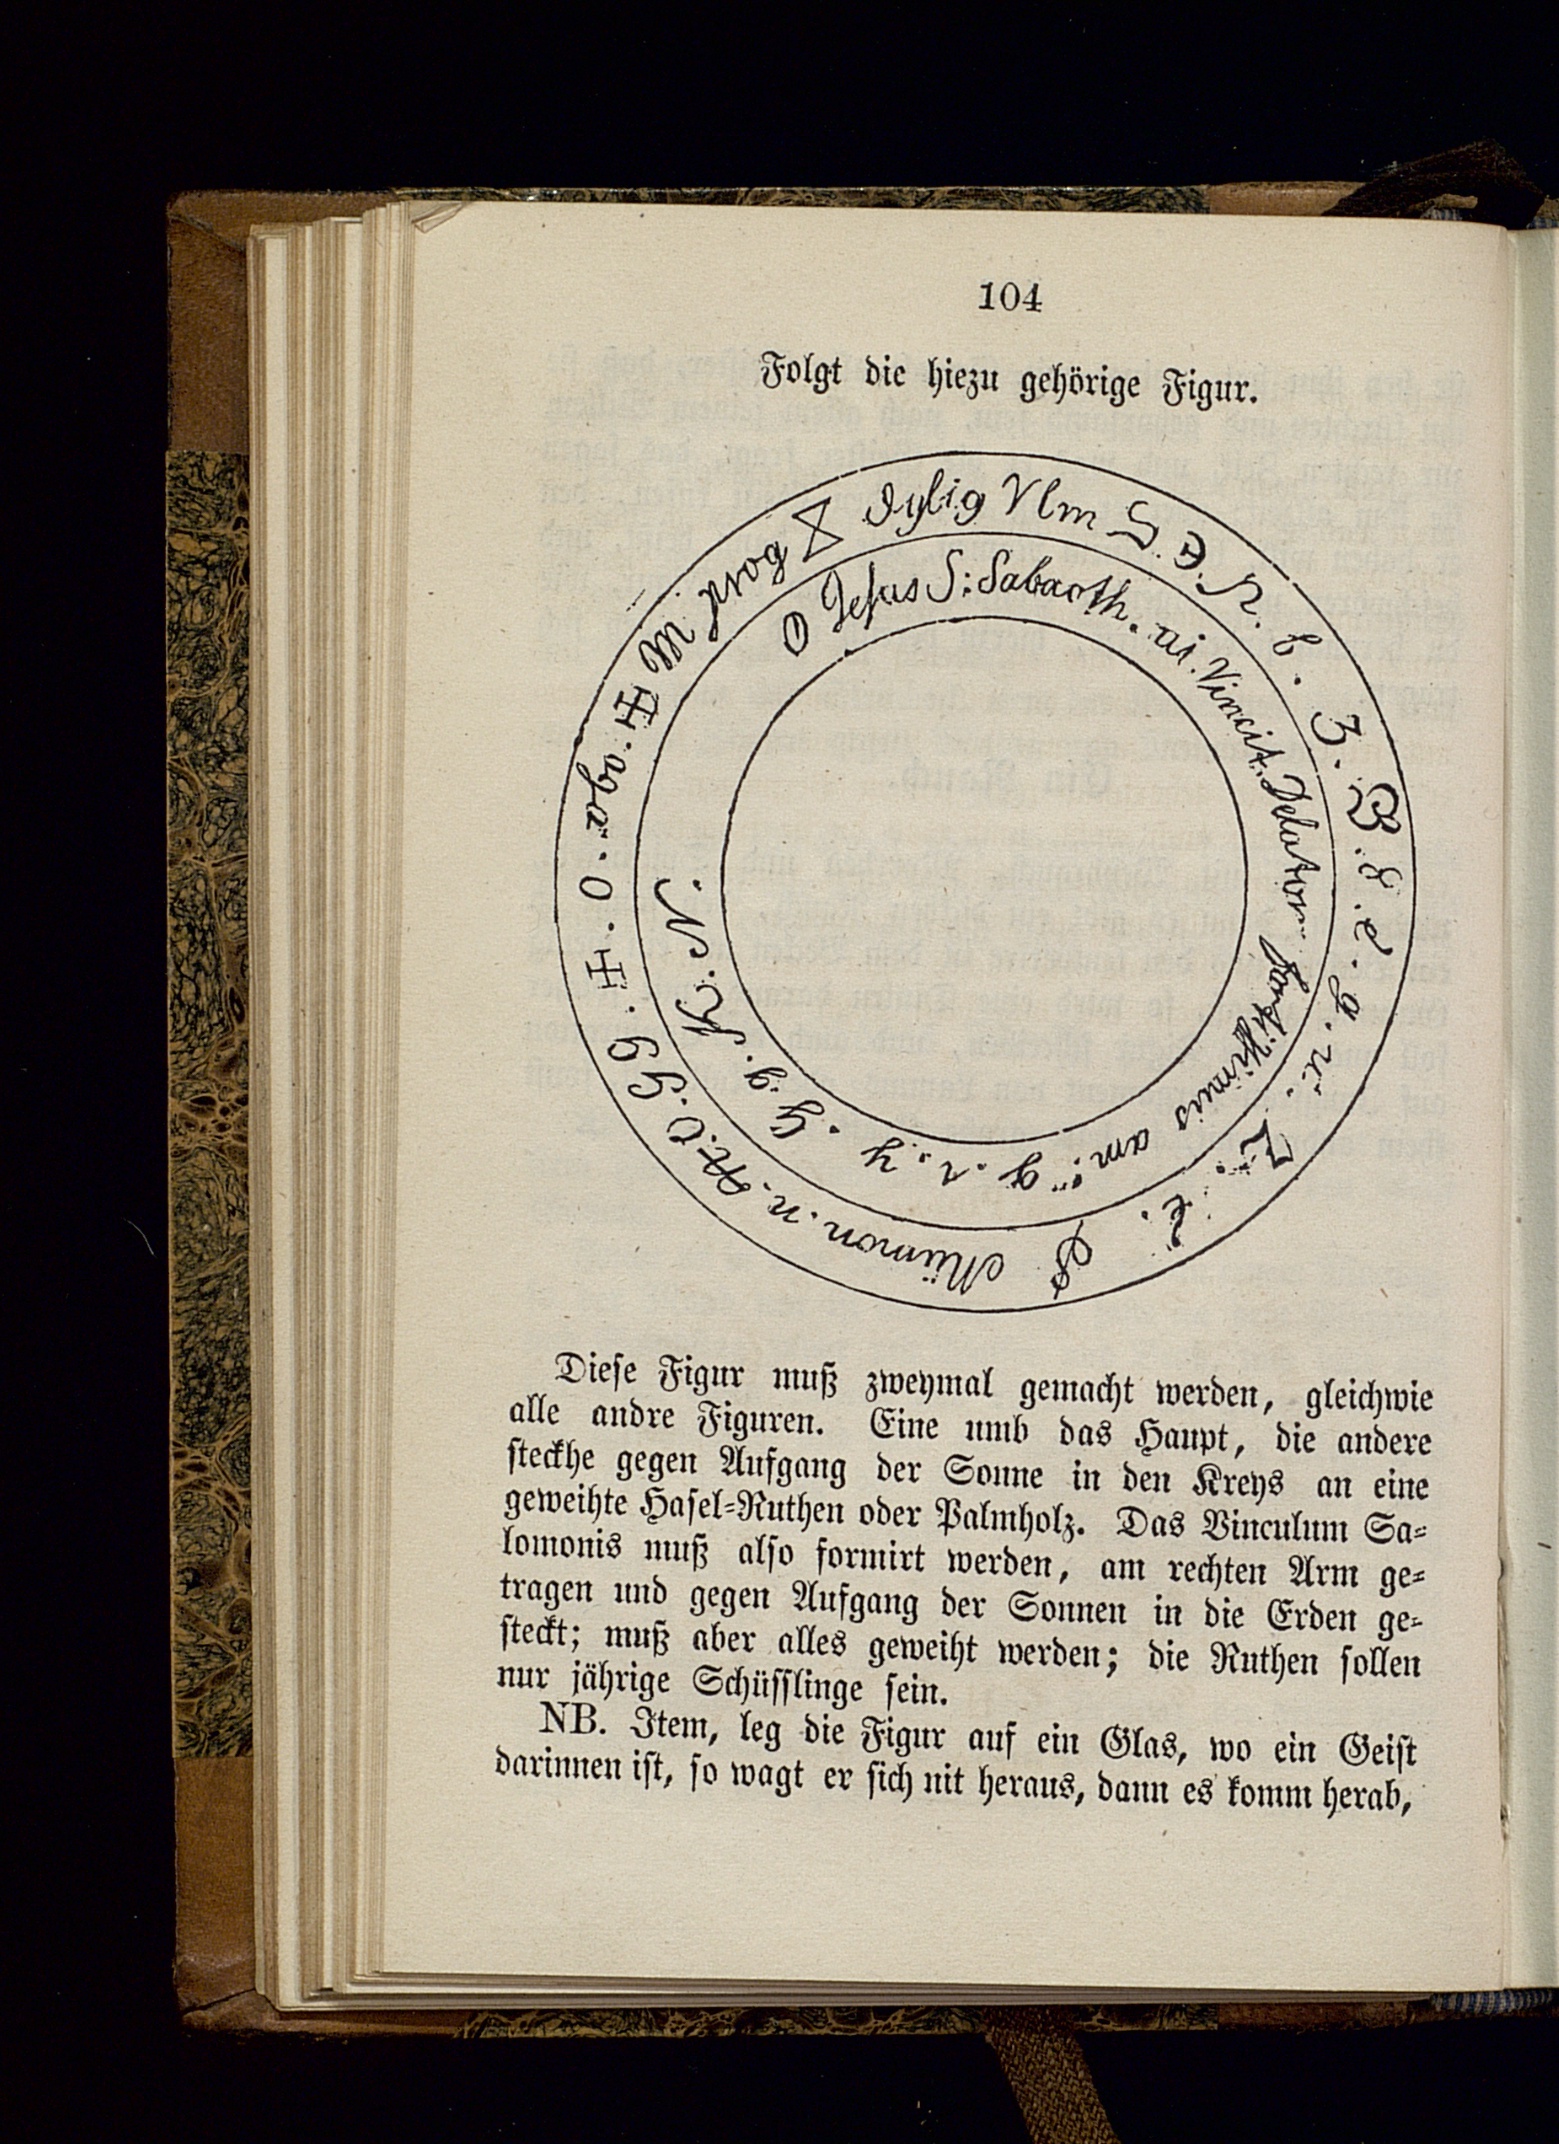 104
Folgt die hiezu gehörige Figur.
O Jesus S: Sabaoth. ai. Vincit. Delator Sanctissimus am
Diese Figur muß zweymal gemacht werden, gleichwie
alle andre Figuren. Eine umb das Haupt, die andere
steckhe gegen Aufgang der Sonne in den Kreys an eine
geweihte Hasel-Ruthen oder Palmholz. Das Vinculum Sa-
lomonis muß also formirt werden, am rechten Arm ge-
tragen und gegen Aufgang der Sonnen in die Erden ge-
steckt; muß aber alles geweiht werden; die Ruthen sollen
nur jährige Schüsslinge sein.
NB. Item, leg die Figur auf ein Glas, wo ein Geist
darinnen ist, so wagt er sich nit heraus, dann es komm herab,